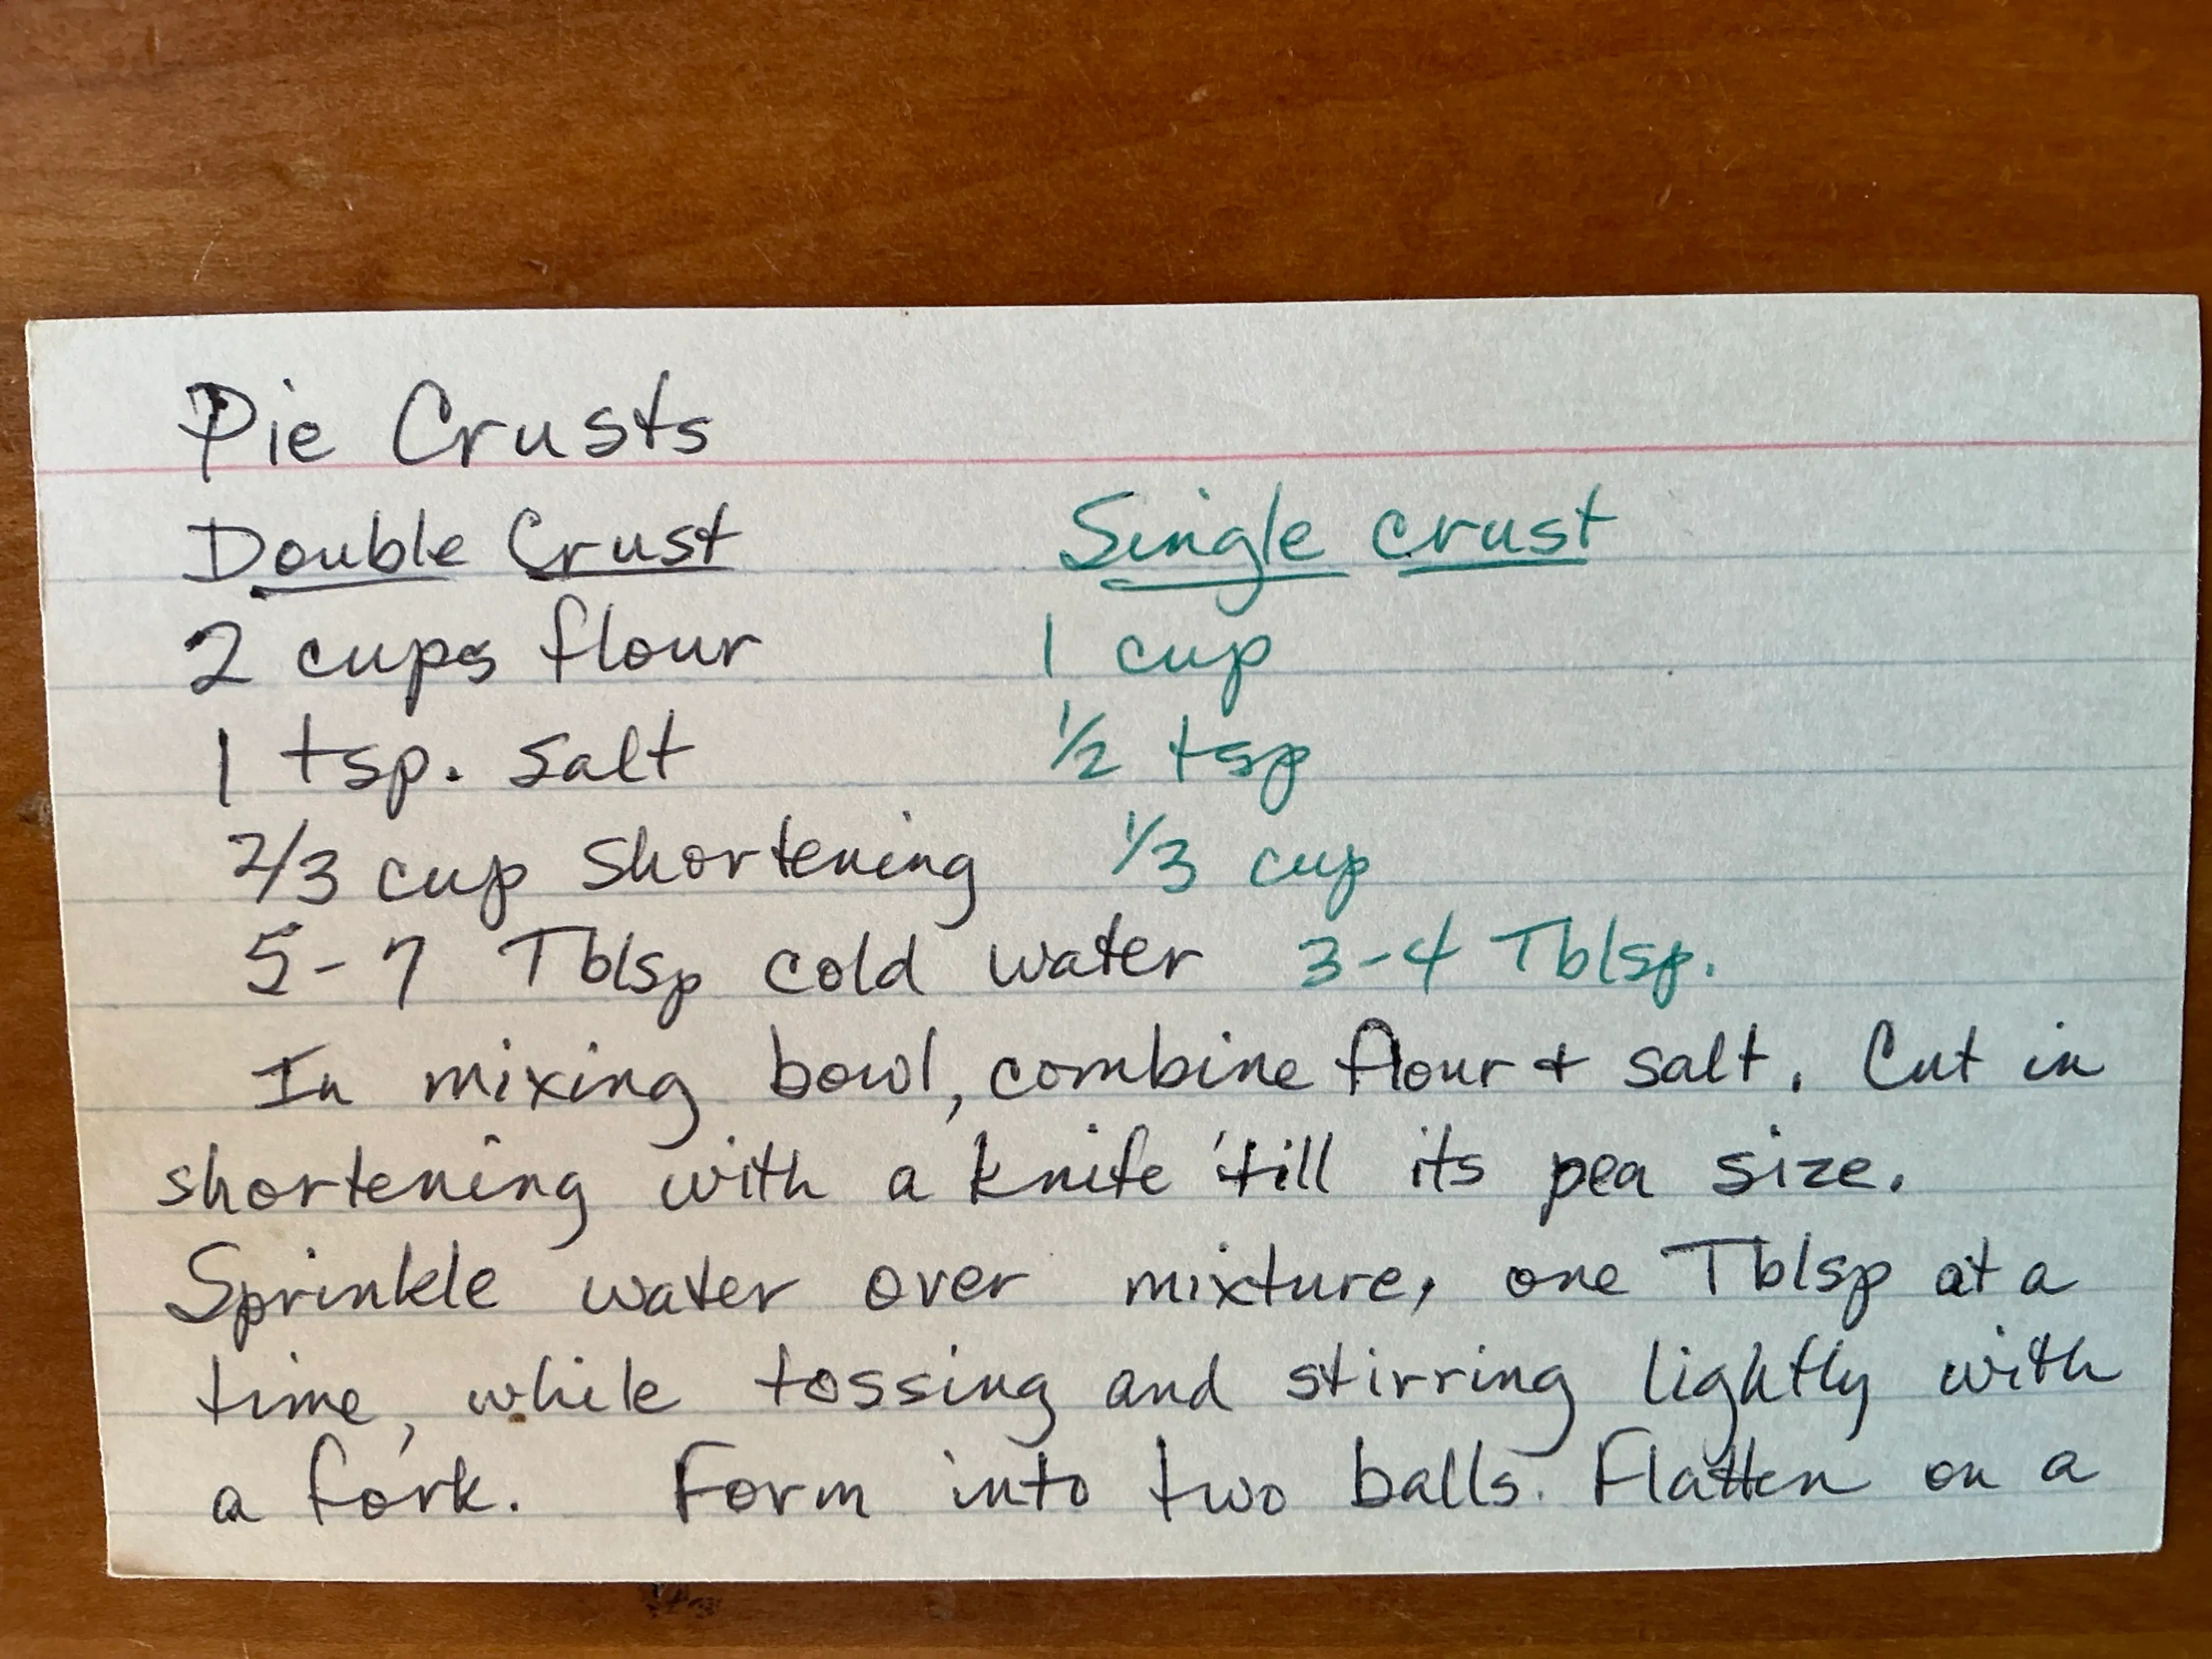 Pie Crusts
Double Crust Single crust
2 cups flour 1 cup
1 tsp. salt 1/2 tsp
2/3 cup shortening 1/3 cup
5-7 Tblsp cold water 3-4 Tblsp.
In mixing bowl, combine flour + salt. Cut in
shortening with a knife 'till its pea size.
Sprinkle water over mixture, one Tblsp at a
time, while tossing and stirring lightly with
a fork. Form into two balls. Flatten on a